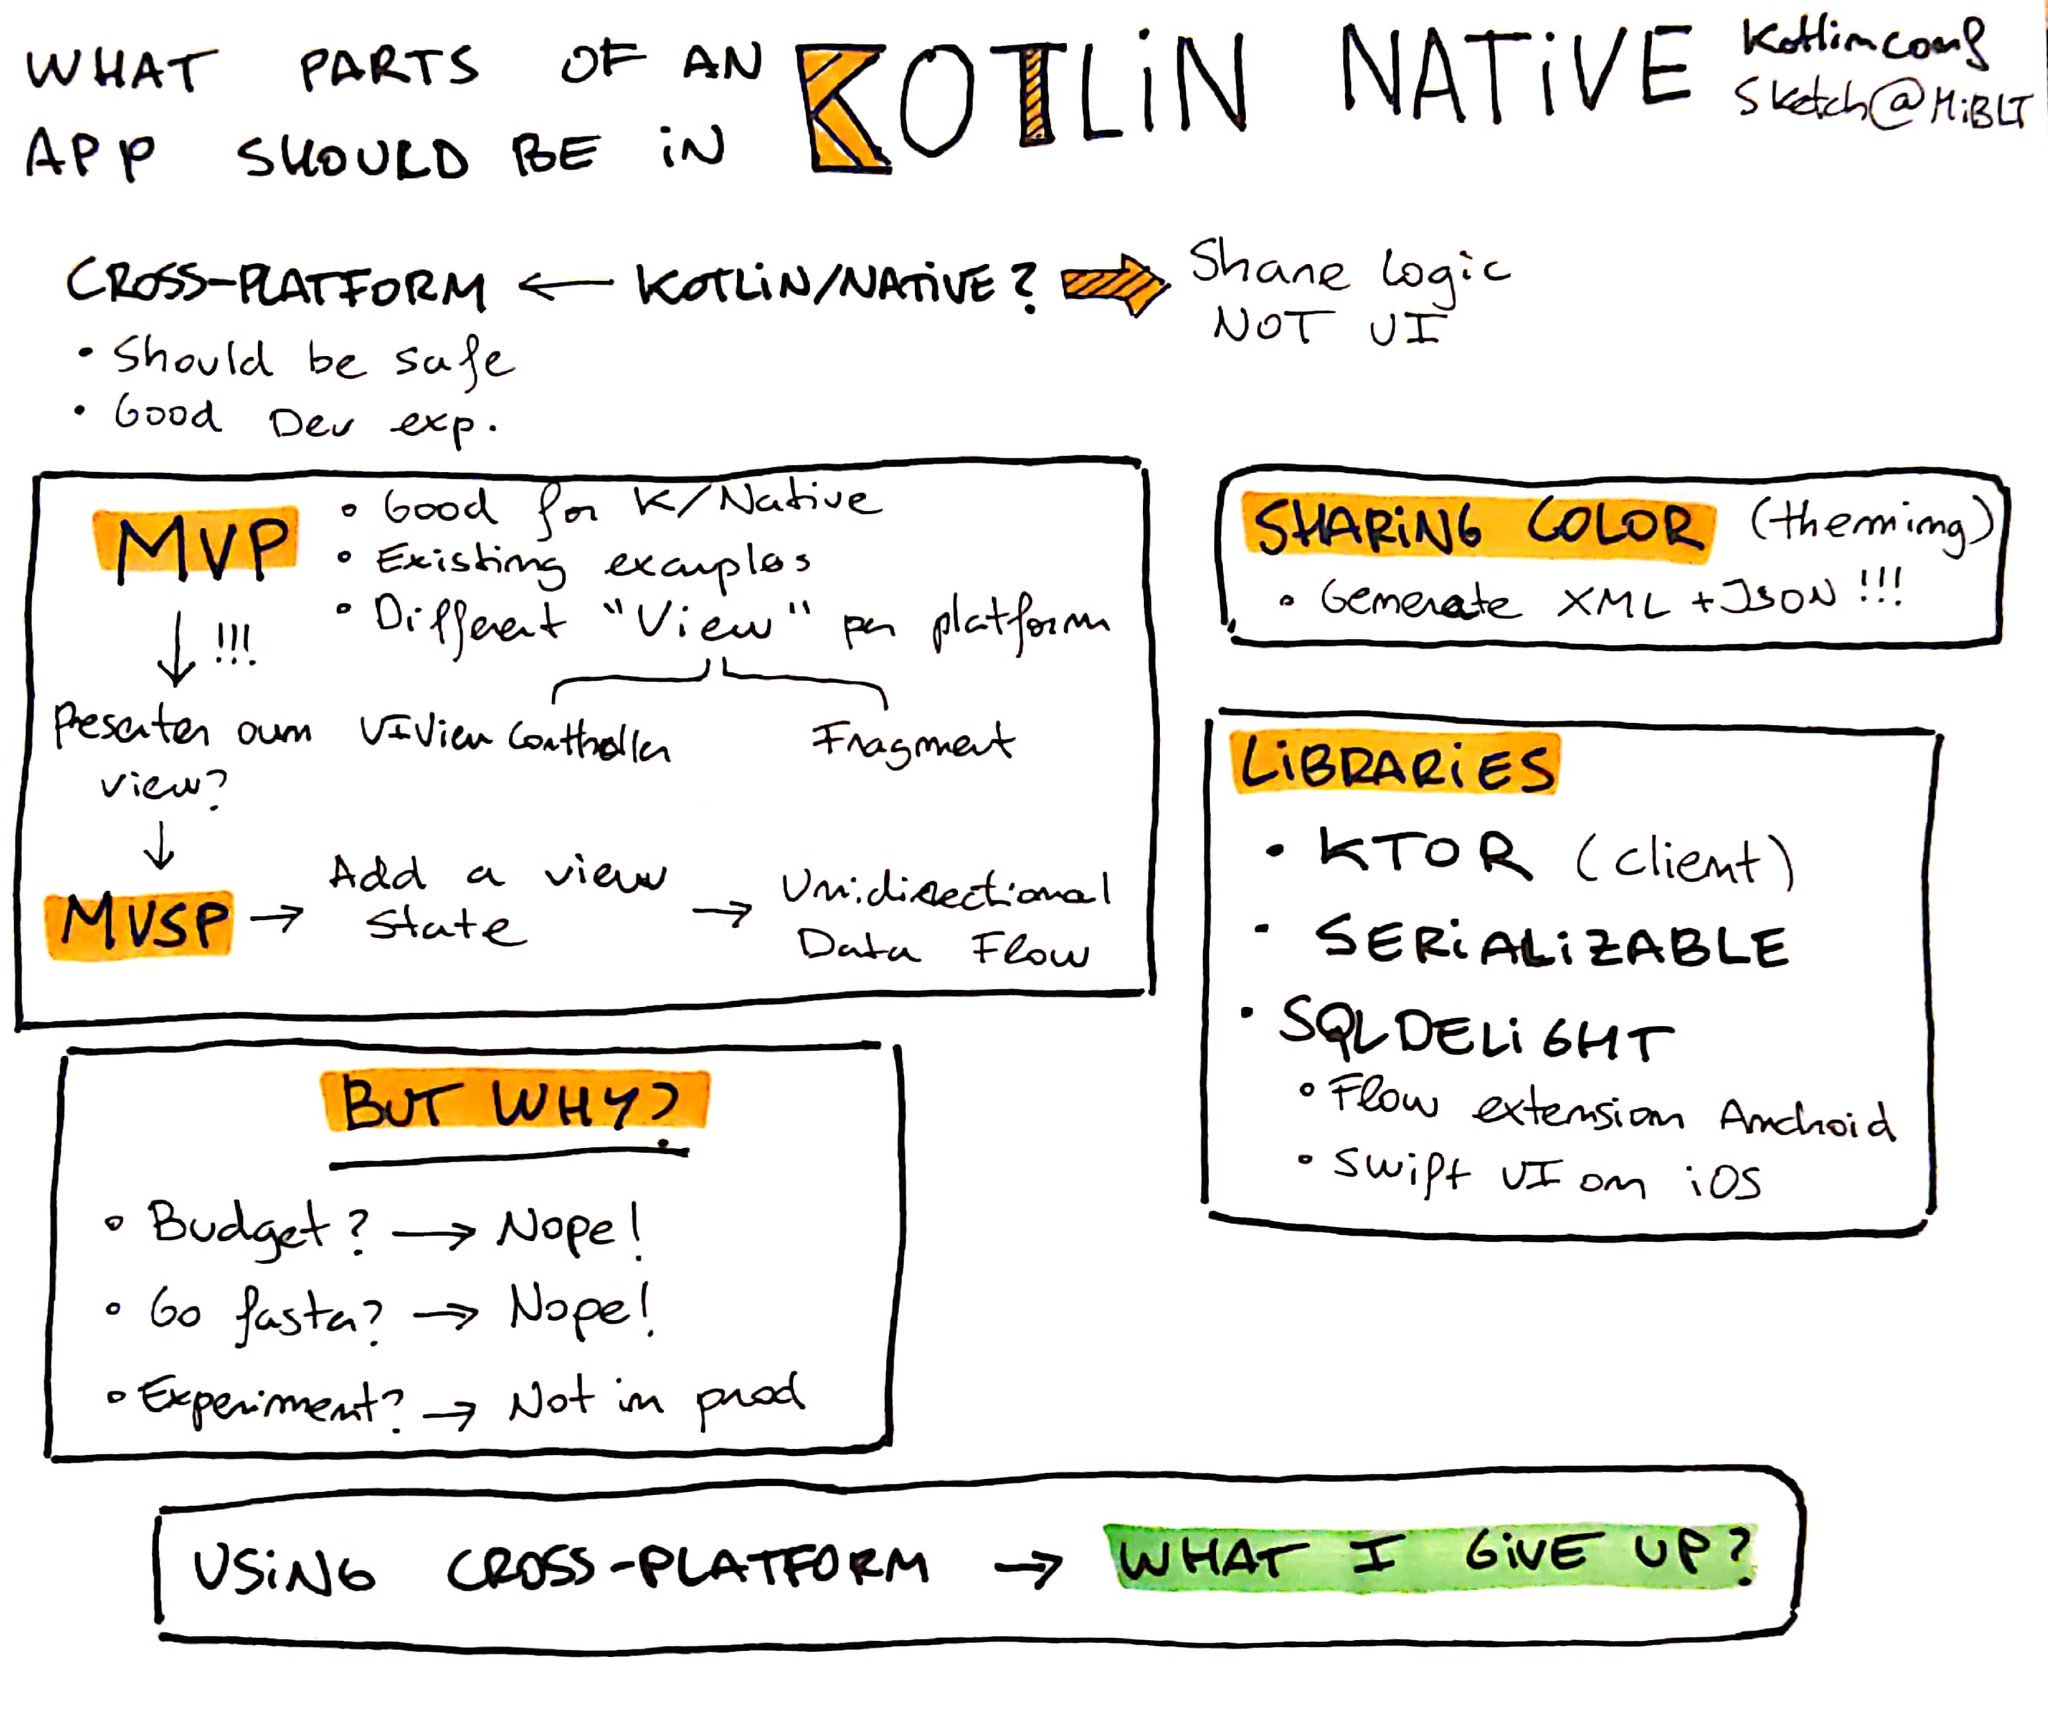 WHAT PARTS OF AN
APP SHOULD BE iN
KOTLiN NATiVE
Kotlinconf
Sketch@MiBLT
CROSS-PLATFORM ← KOTLiN/NATiVE? → Share Logic
NOT UI
• Should be safe
• Good Dev exp.
MVP
• Good for K/Native
• Existing examples
• Different "View" per platform
!!!
UIViewController
Fragment
Presenter own
view?
MVSP → Add a view
state
→ Unidirectional
Data Flow
SHARiNG COLOR (theming)
• Generate XML + JSON !!!
LiBRARiES
• KTOR (client)
• SERiALiZABLE
• SQLDELiGHT
• Flow extension Android
• Swift UI on iOS
BUT WHY?
• Budget? → Nope!
• Go faster? → Nope!
• Experiment? → Not in prod
USiNG CROSS-PLATFORM → WHAT I GiVE UP?